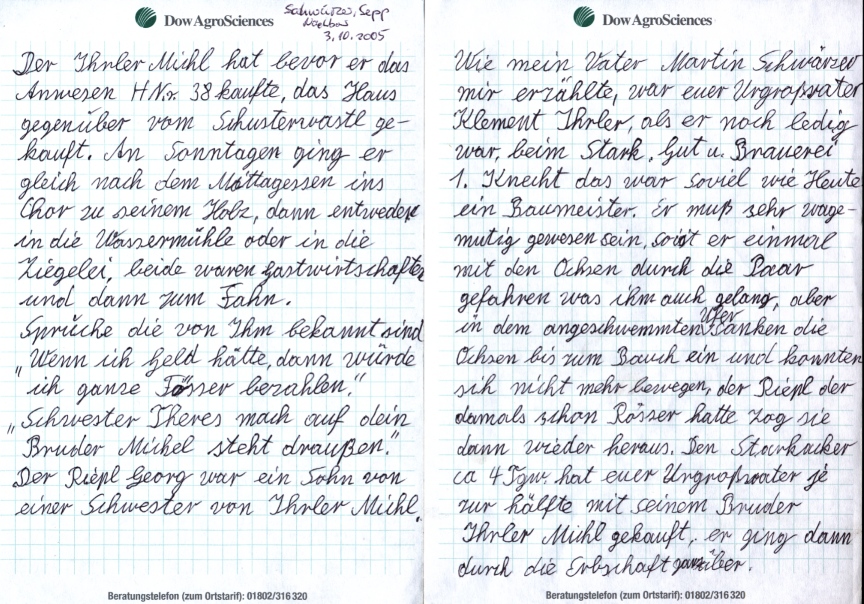 DowAgroSciences
Schwärzer, Sepp
Nachbar
3.10.2005
Der Ihrler Michl hat bevor er das
Anwesen HNr. 38 kaufte, das Haus
gegenüber vom Schusterwastl ge-
kauft. An Sonntagen ging er
gleich nach dem Mittagessen ins
Chor zu seinem Holz, dann entweder
in die Wassermühle oder in die
Ziegelei, beide waren Gastwirtschaften
und dann zum Fahn.
Sprüche die von Ihm bekannt sind
„Wenn ich Geld hätte, dann würde
ich ganze Fässer bezahlen."
„Schwester Theres mach auf dein
Bruder Michel steht draußen."
Der Riepl Georg war ein Sohn von
einer Schwester von Ihrler Michl.
Beratungstelefon (zum Ortstarif): 01802/316 320
DowAgroSciences
Wie mein Vater Martin Schwärzer
mir erzählte, war euer Urgroßvater
Klement Ihrler, als er noch ledig
war, beim Stark, Gut u. Brauerei
1. Knecht das war soviel wie Heute
ein Baumeister. Er muß sehr wage-
mutig gewesen sein, er einmal
mit den Ochsen durch die Paar
gefahren was ihm auch gelang, aber
in dem angeschwemmten Ufer sanken die
Ochsen bis zum Bauch ein und konnten
sich nicht mehr bewegen, der Riepl der
damals schon Rösser hatte zog sie
dann wieder heraus. Den Starkacker
ca 4 Tgw. hat euer Urgroßvater je
zur hälfte mit seinem Bruder
Ihrler Michl gekauft, er ging dann
durch die Erbschaft über.
Beratungstelefon (zum Ortstarif): 01802/316 320